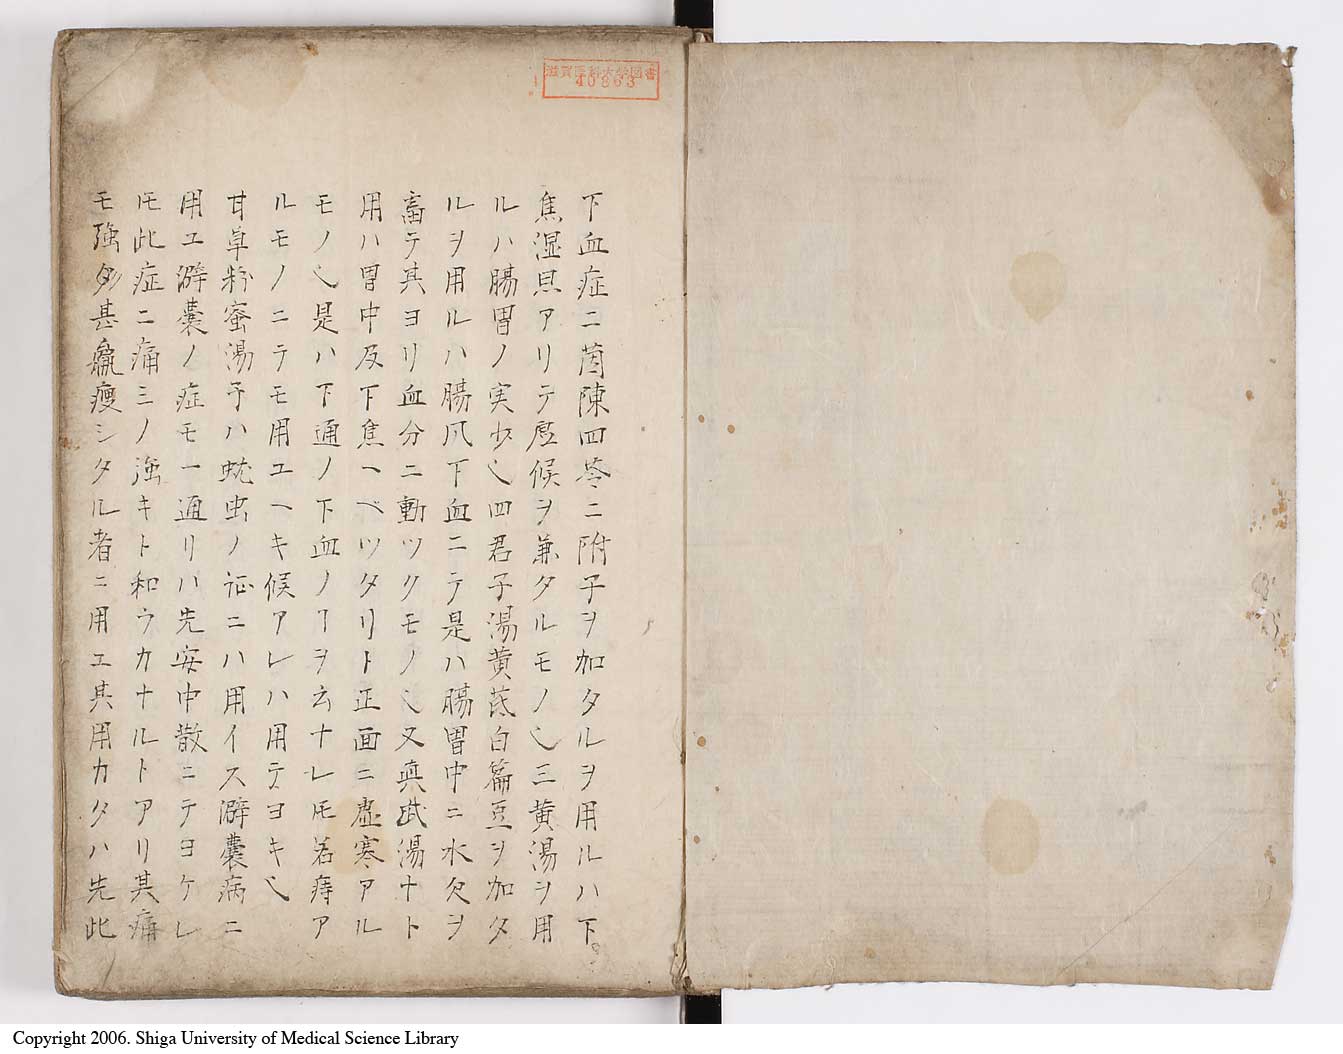 滋賀医科大学図書
40863
下血症ニ茵陳四苓ニ附子ヲ加タルヲ用ルハ下
焦湿熱アリテ虚候ヲ兼タルモノ乀三黄湯ヲ用
ルハ腸胃ノ実少乀四君子湯黄芪白篇豆ヲ加タ
ルヲ用ルハ腸风下血ニテ是ハ腸胃中ニ水欠ヲ
畜テ其ヨリ血分ニ動ツクモノ乀又真武湯ナト
用ハ胃中及下焦ヘベツタリト正面ニ虚寒アル
モノ乀是ハ下通ノ下血ノヿヲ云ナレ𪜈若痔ア
ルモノニテモ用ユヘキ候アレハ用テヨキ乀
甘草粉蜜湯予ハ蚘虫ノ証ニハ用イス澼嚢病ニ
用ユ澼嚢ノ症モ一通リハ先安中散ニテヨケレ
𪜈此症ニ痛ミノ強キト和ウカナルトアリ其痛
モ強ク甚羸痩シタル者ニ用ユ其用カタハ先此
Copyright 2006. Shiga University of Medical Science Library